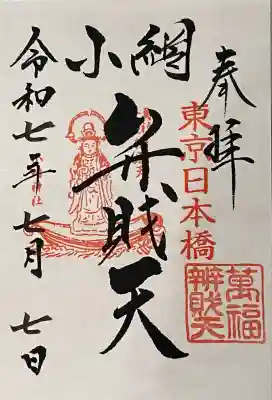 奉拝
東京日本橋
萬福
辨財天
小網
弁財天
令和七年七月七日